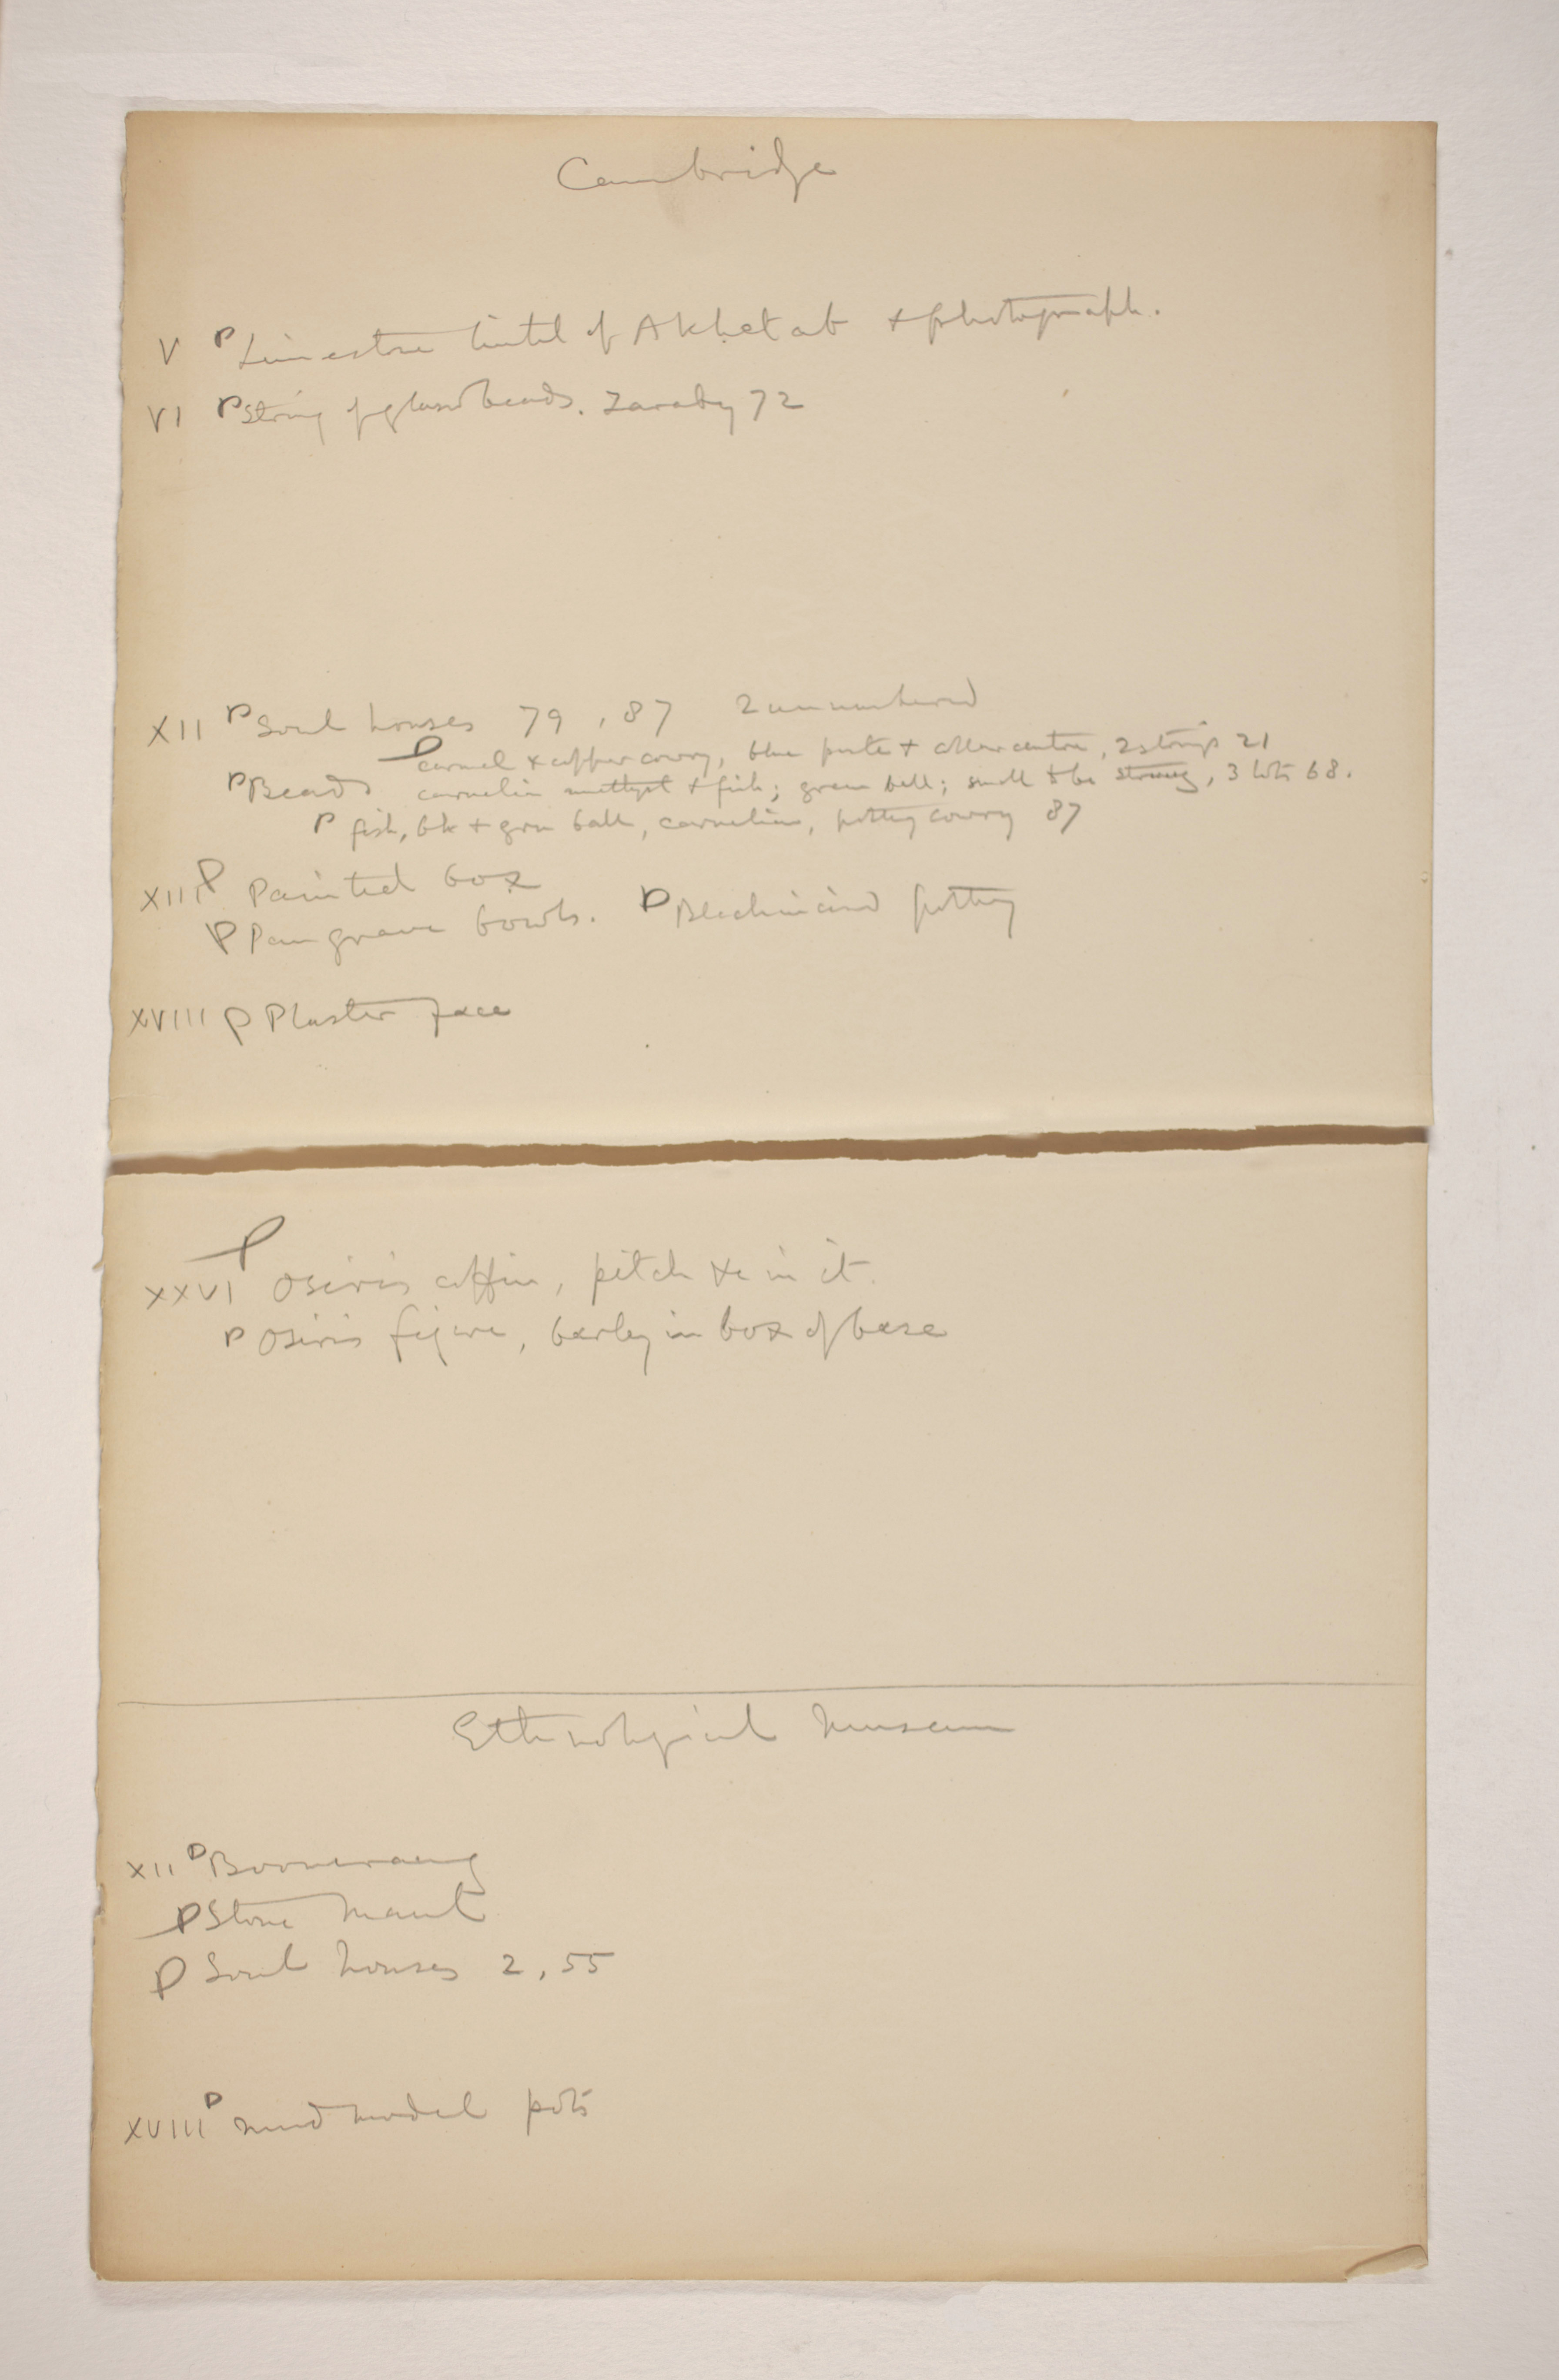 Cambridge
V P Limestone lintel of Akhetab + photograph.
VI P String of glass beads. Zaraby 72
XII P Soul houses 79, 87 2 unnumbered
P carnel + copper cowry, blue paste + centre, 2 strings 21
P Beads carnelian amethyst + fish; green ball; small strung, 3 lots 68.
P fish, bk + grn ball, carnelian, pottery cowry 87
XIII P Painted box
P Pan grave bowls. P Blackincised pottery
XVIII P Plaster face
P
XXVI Osiris coffin, pitch &c in it.
P Osiris figure, barley in box of base
Ethnological Museum
XII P Boomerang
P Stone maul
P Soul houses 2, 55
XVIII P mud model pots